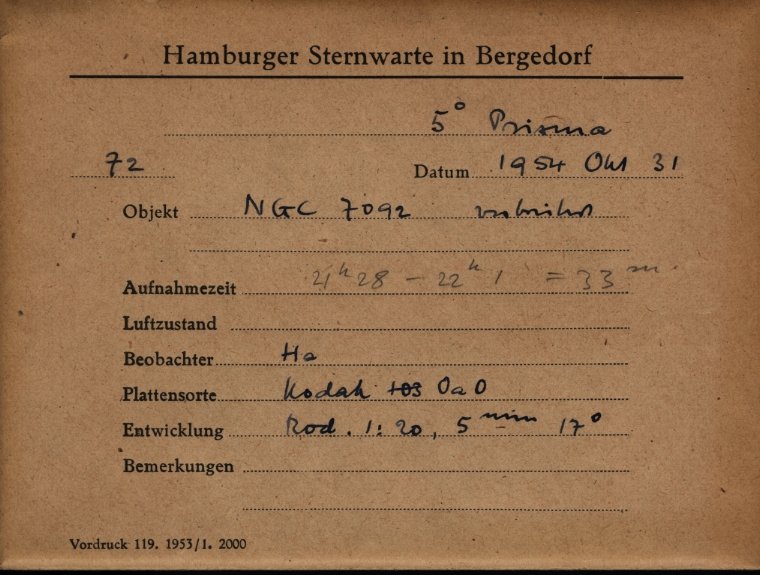 Hamburger Sternwarte in Bergedorf
5° Prisma
72 Datum 1954 Okt 31
Objekt NGC 7092
Aufnahmezeit 21h 28 – 22h 1 = 33m
Luftzustand
Beobachter Ha
Plattensorte Kodak 103 OaO
Entwicklung Rod. 1:20, 5 min 17°
Bemerkungen
Vordruck 119. 1953/1. 2000